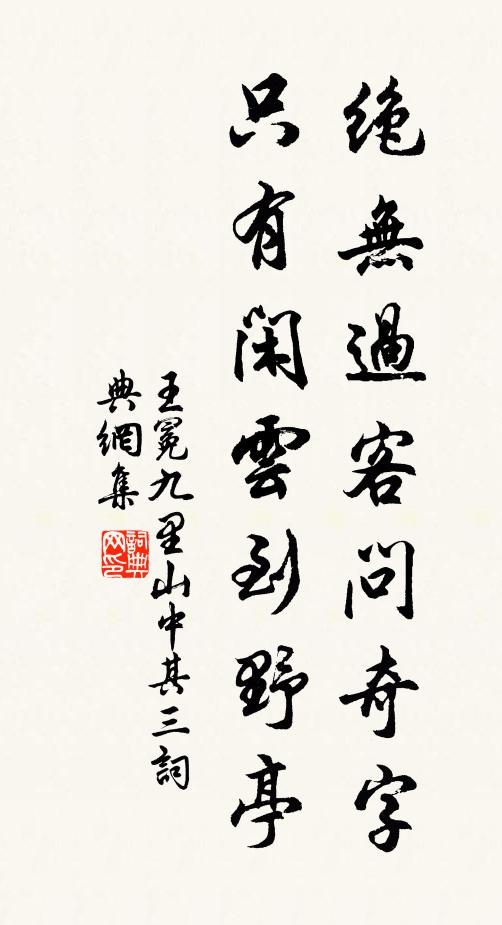 絶無過客問奇字
只有閑雲到野亭
王冕九里山中其三詞
典網集
詞典网印